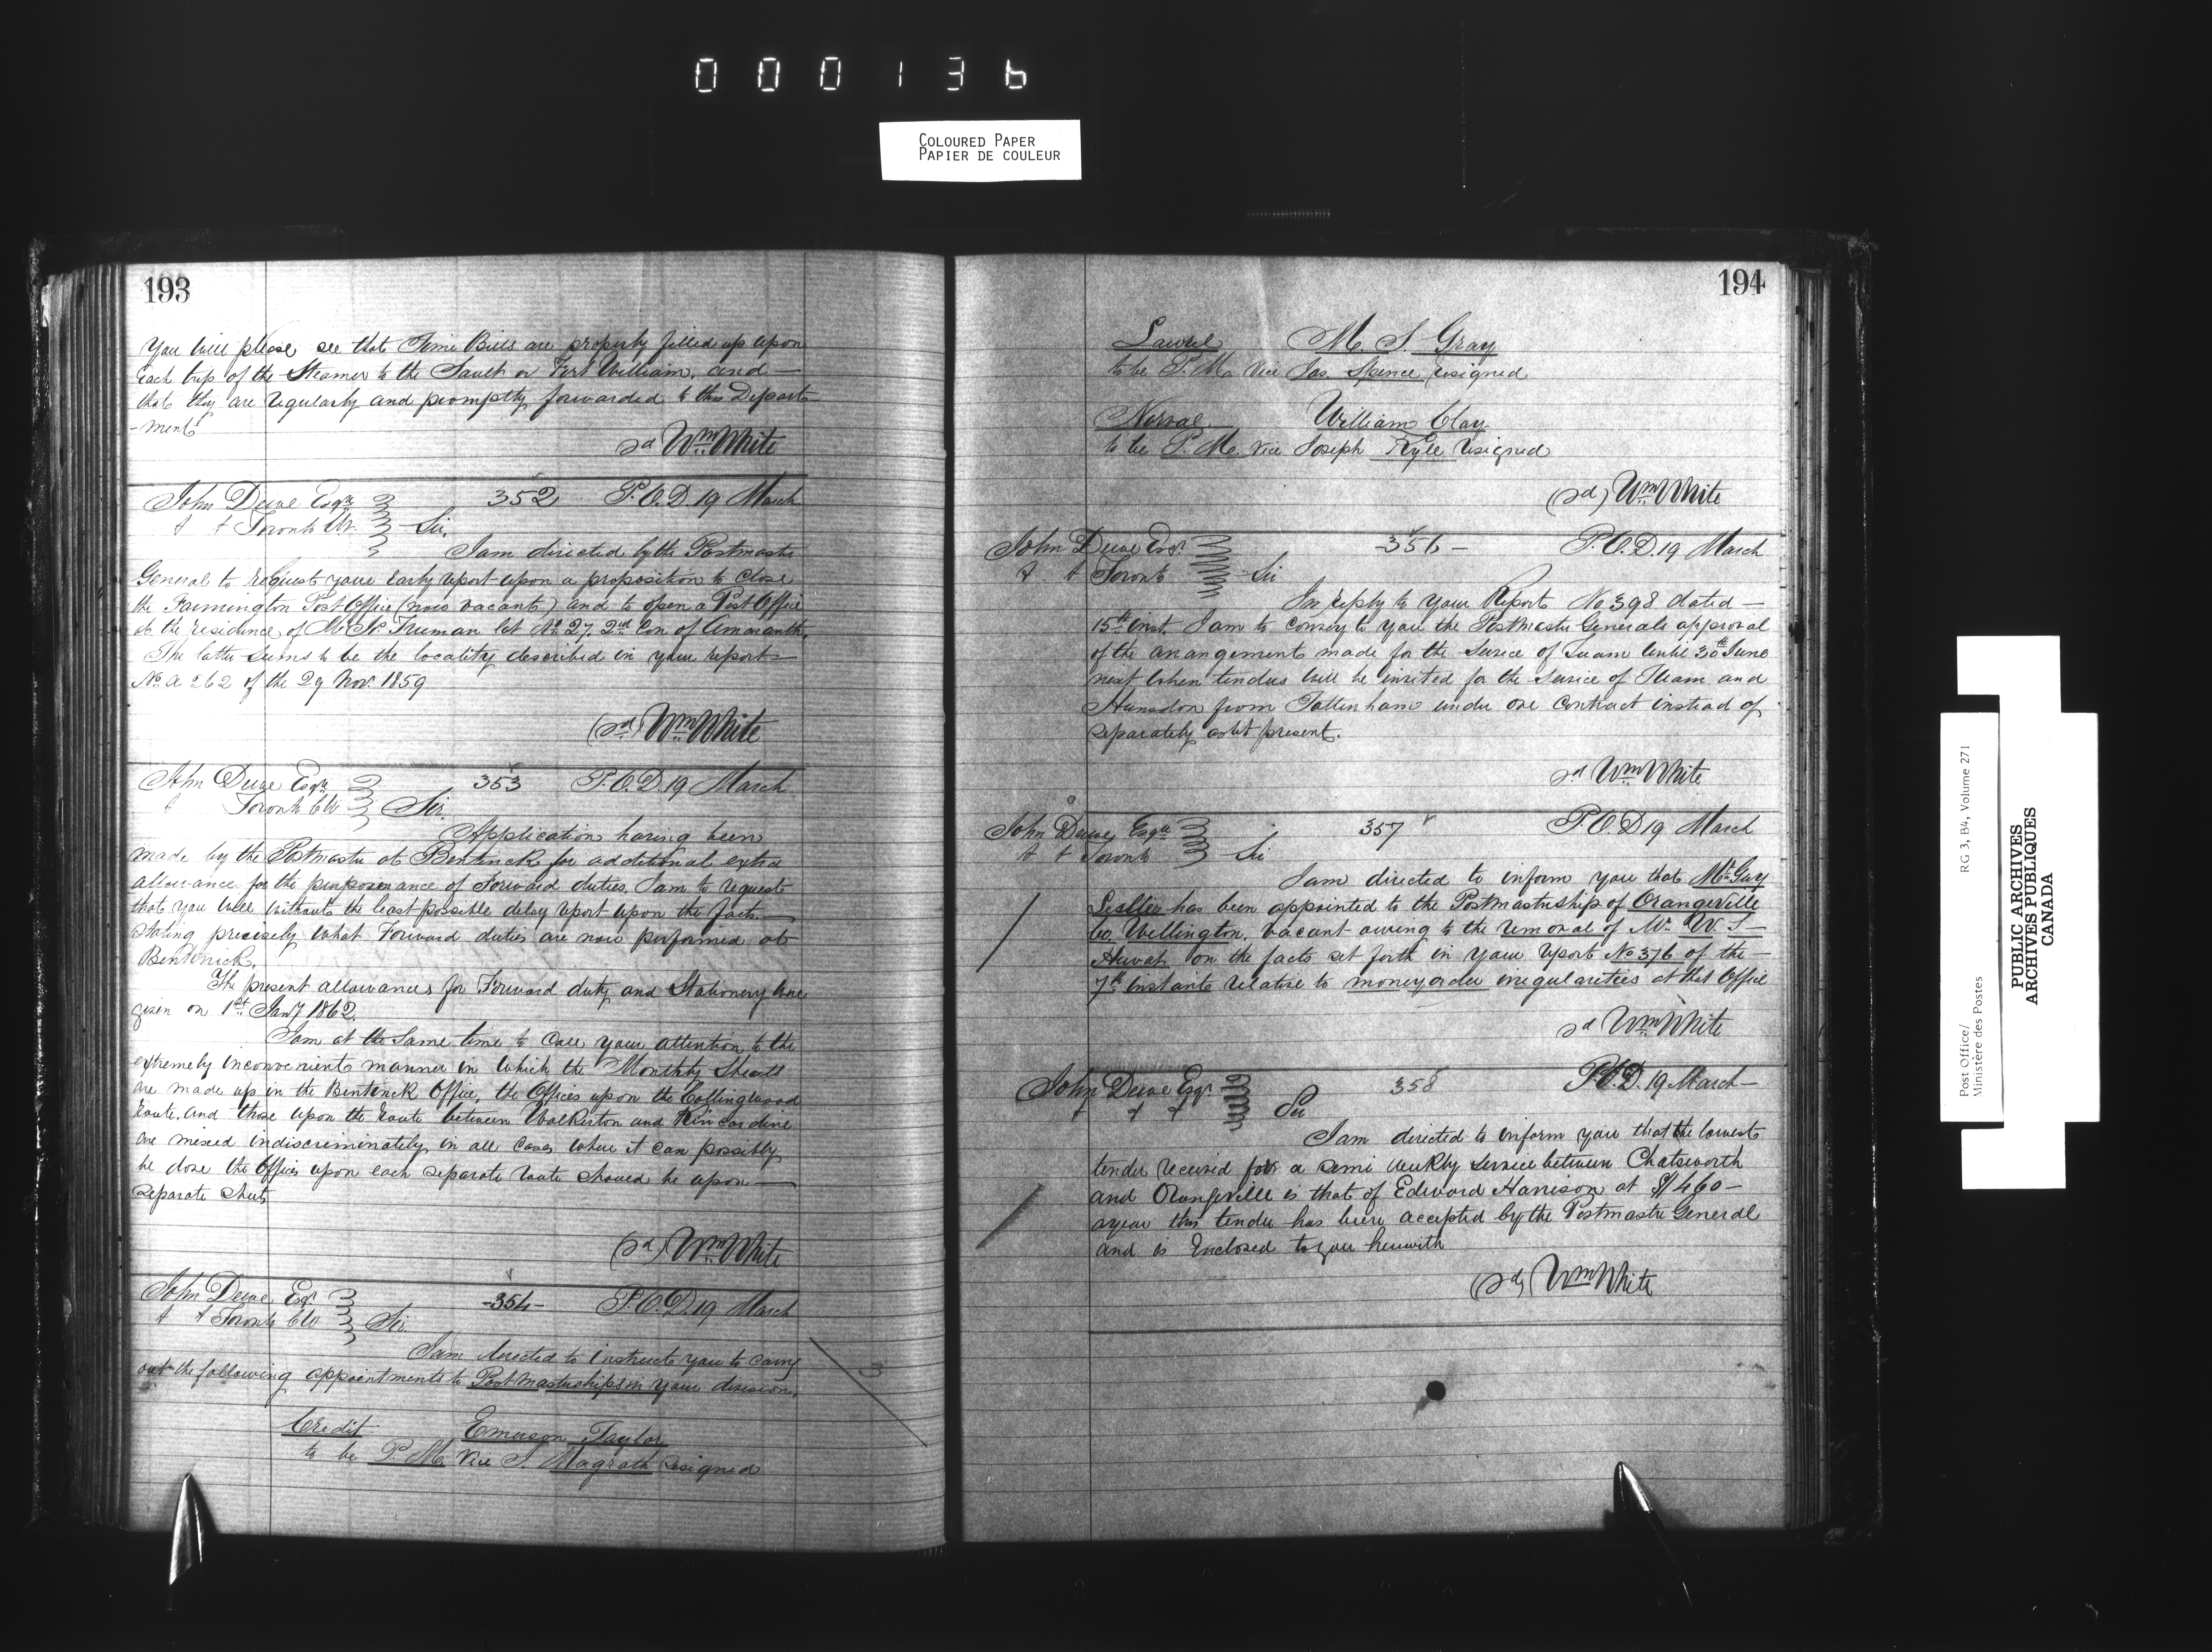 000136
COLOURED PAPER
PAPIER DE COULEUR
193
You will please see that Time Bills are properly filled up upon
each trip of the Steamer to the Sault or Fort William, and —
that they are regularly and promptly forwarded to this Depart-
-ment
sd Wm White
John Dewe Esqre 352 P.O.D. 19 March
Toronto CW. Sir,
I am directed by the Postmaster
General to request your early report upon a proposition to close
the Farmington Post Office (now vacant) and to open a Post Office
at the residence of Truman lot No 27. 2nd Con of Amaranth.
The latter seems to be the locality described in your report —
No. a 262 of the 29 Nov. 1859
(sd) Wm White
John Dewe Esqre 353 P.O.D. 19 March
Toronto CW Sir.
Application having been
made by the Postmaster at Bentinck for additional extra
allowance for the of Forward duties, I am to request
that you will without the least possible delay report upon the facts —
stating precisely what Forward duties are now performed at
Bentinck.
The present allowances for Forward duty and Stationery were
given on 1st Jany 1862.
I am at the same time to call your attention to the
extremely inconvenient manner in which the Monthly Sheets
are made up in the Bentinck Office, the Offices upon the Collingwood
Route, and those upon the route between Walkerton and Kincardine
are mixed indiscriminately, in all cases where it can possibly
be done the Offices upon each separate route should be upon —
separate sheets
(sd) Wm White
John Dewe Esqr. -354- P.O.D. 19 March
Toronto CW Sir.
I am directed to instruct you to carry
out the following appointments to Postmasterships in your division.
Credit Emerson Taylor
to be P.M. vice S. Magrath resigned
194
Laurel M. S. Gray
to be P.M. vice Jas. Spence resigned
Norval William Clay
to be P.M. vice Joseph Kyle resigned
(sd) Wm White
John Dewe Esqr. -356- P.O.D. 19 March
Toronto Sir
In reply to your Report No 398 dated —
15th inst. I am to convey to you the Postmaster Generals approval
of the arrangement made for the service of Tuam until 30th June
next when tenders will be invited for the service of Tuam and
Hunsdon from Tottenham under one contract instead of
separately as at present.
sd Wm White
John Dewe Esqre 357 P.O.D 19 March
Toronto Sir
I am directed to inform you that Mr Guy
Leslie has been appointed to the Postmastership of Orangeville
Co. Wellington, vacant owing to the removal of Mr. W. S —
on the facts set forth in your report No 376 of the —
7th instant relative to money order irregularities at that Office
sd Wm White
John Dewe Esqr 358 P.O.D. 19 March —
Sir
I am directed to inform you that the lowest
tender received for a semi weekly service between Chatsworth
and Orangeville is that of Edward Harrison at $460 —
a year this tender has been accepted by the Postmaster General
and is Enclosed to you herewith
(sd) Wm White
Post Office/ RG 3, B4, Volume 271
Ministère des Postes
PUBLIC ARCHIVES
ARCHIVES PUBLIQUES
CANADA